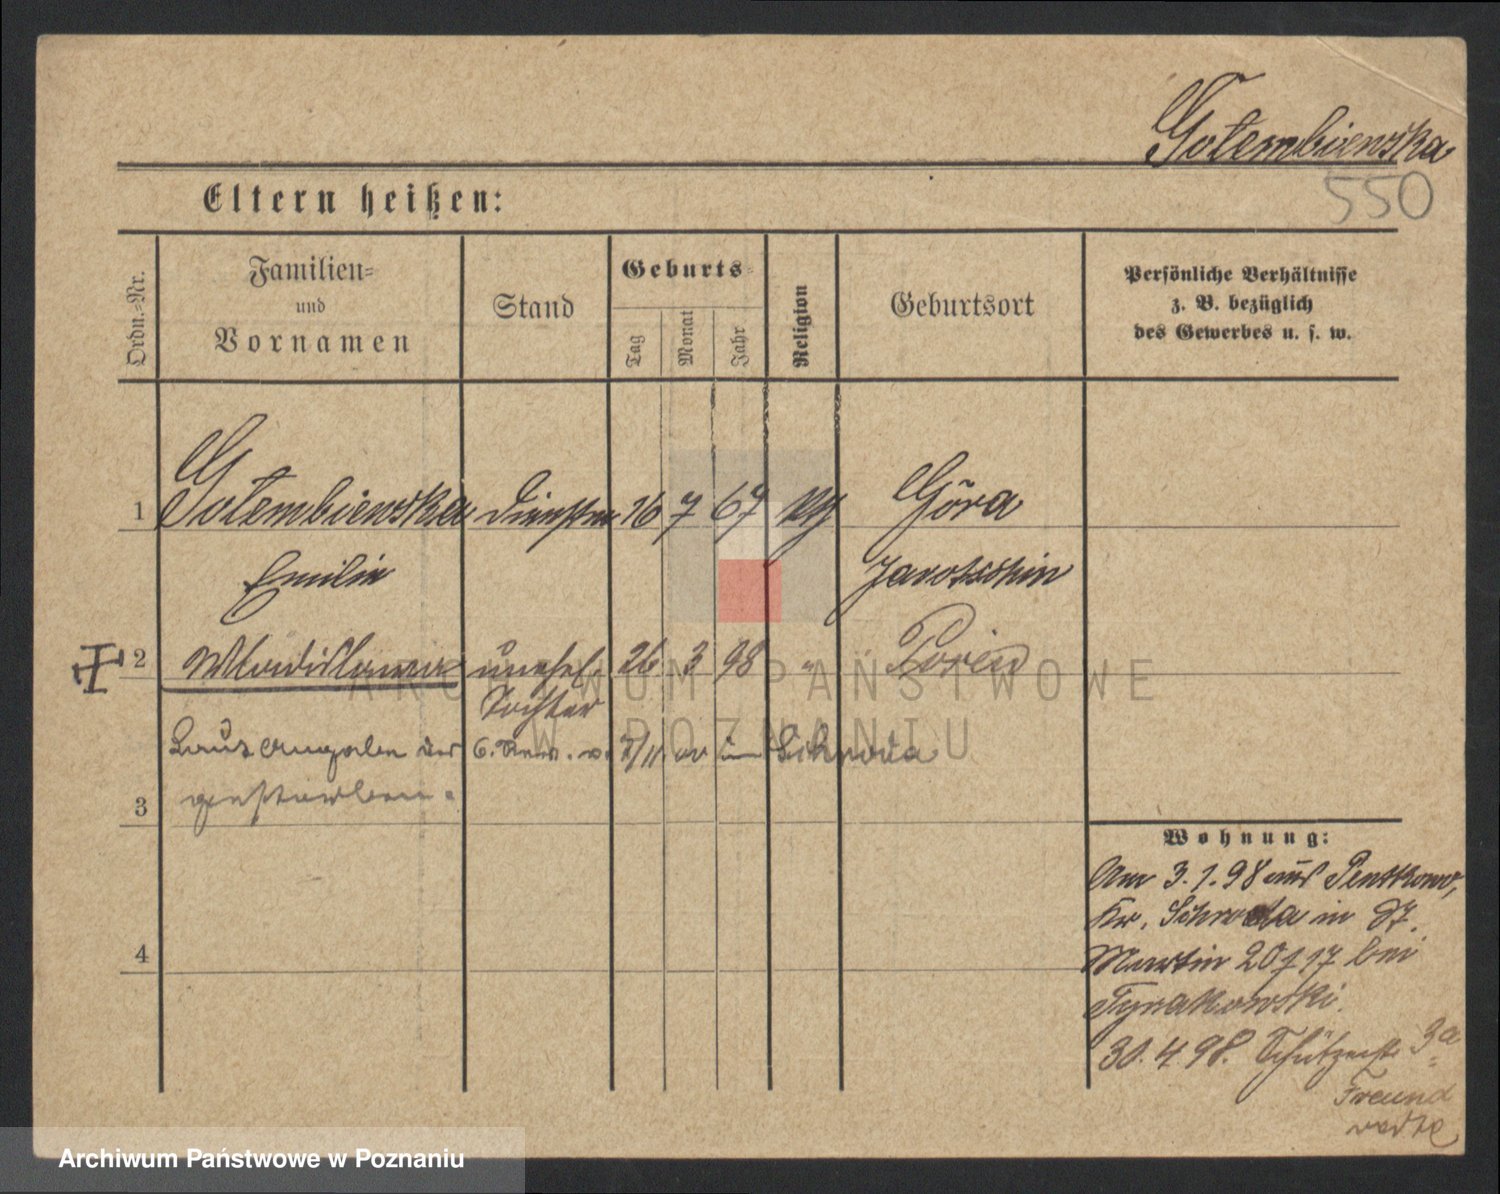 Gotembiewska
550
Eltern heißen:
Ordn.-Nr.
Familien-
und
Vornamen
Stand
Geburts-
Tag
Monat
Jahr
Religion
Geburtsort
Persönliche Verhältnisse
z. B. bezüglich
des Gewerbes u. s. w.
1 Gotembiewska 16 7 67 Góra
Emilie Jarotschin
2 Wladislawa unehel. 26 3 98 " Posen
Tochter
Laut Angabe des 6. Rev. v. 7/11 im Schroda
3 gestorben.
4
Wohnung:
Am 3.1.98 aus Pentkowo,
Kr. Schroda in St.
Martin 20/17 bei
Tyrakowski.
30.4.98. Schützenstr. 3a
Freund
ARCHIWUM PAŃSTWOWE
W POZNANIU
Archiwum Państwowe w Poznaniu